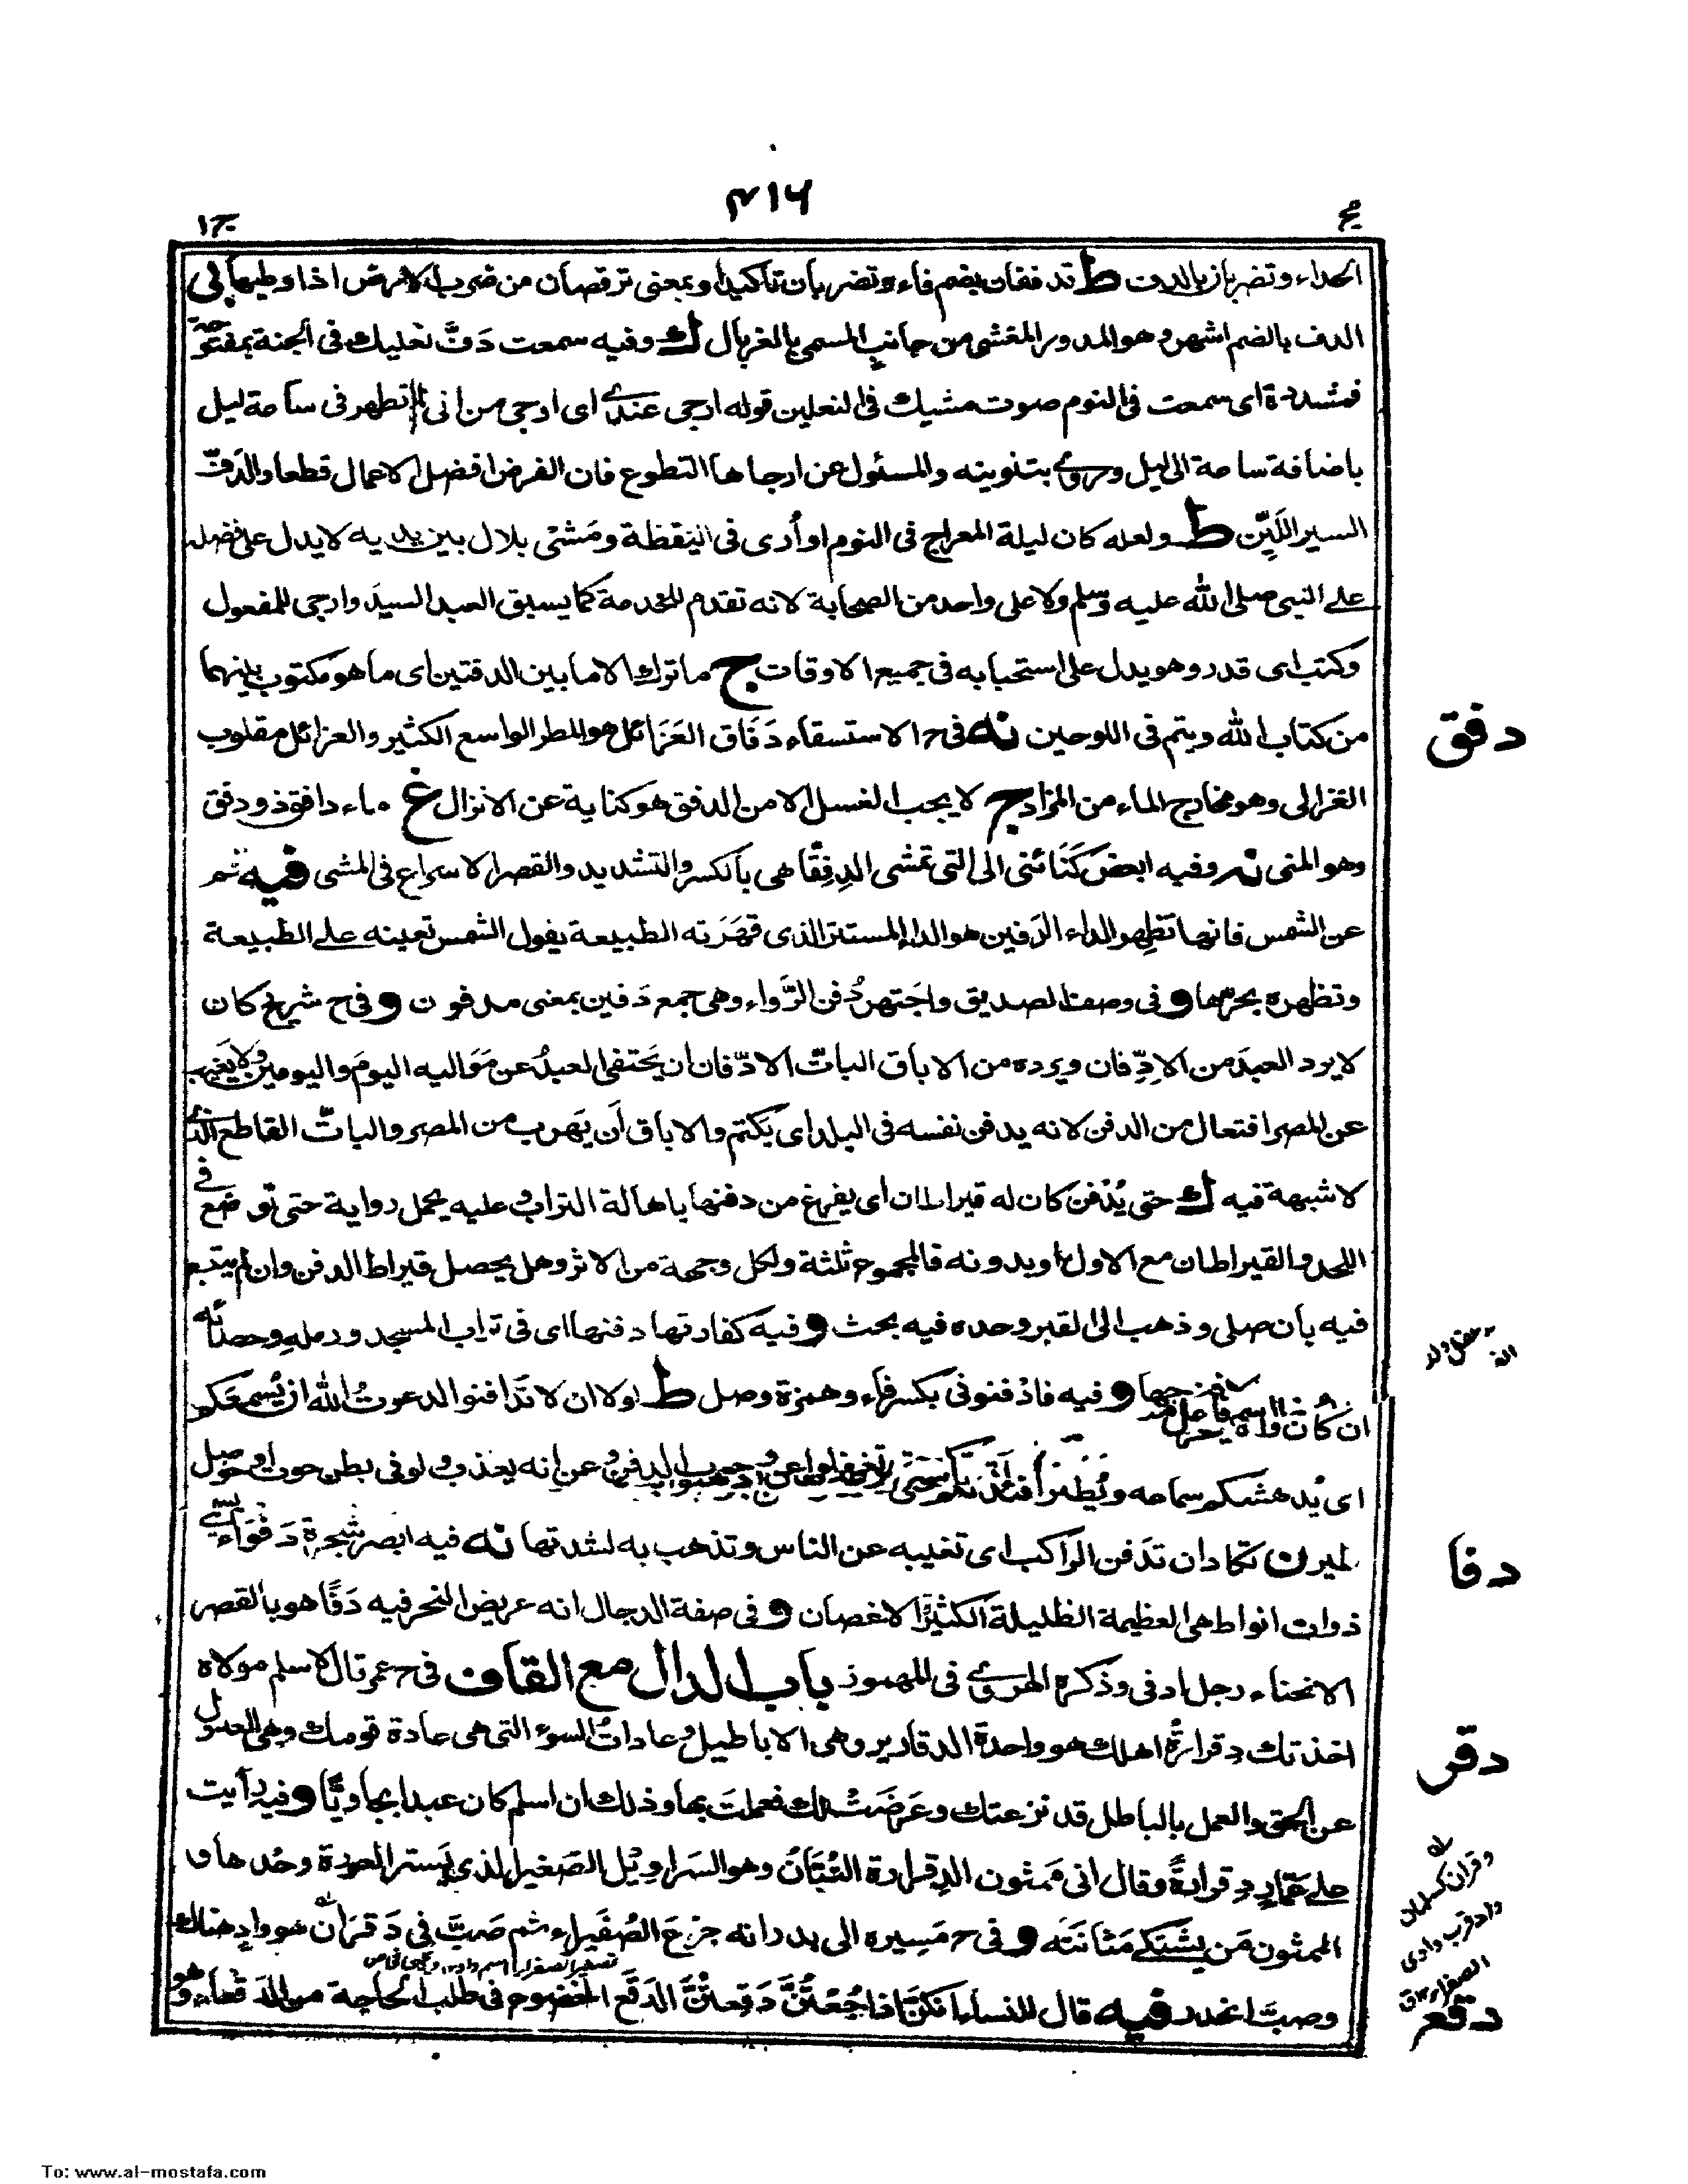 ٤١٦
مج
ج١
الحداء وتضربان بالدف ط تدففان بضم فاء وتضربان تاكيدا وبمعنى ترقصان من ضرب الارض اذا وطيها في
الدف بالضم اشهر وهو المدور المغشى من جانب المسمى بالغربال ك وفيه سمعت دَفَّ نعليك فى الجنة بمفتوحة
فمشددة اى سمعت فى النوم صوت مشيك فى النعلين قوله ارجى عندى اى ارجى من انى لم اتطهر فى ساعة ليل
باضافة ساعة الى ليل وروى بتنوينه والمسئول عن ارجاها التطوع فان الفرض افضل الاعمال قطعا والدَفّ
السير اللَيِّن ط ولعله كان ليلة المعراج فى النوم او أُرى فى اليقظة ومَشْى بلال بين يديه لا يدل على فضله
على النبى صلى الله عليه وسلم ولا على واحد من الصحابة لانه تقدم للخدمة كما يسبق العبد السيدَ وارجى للمفعول
وكتب اى قدر وهو يدل على استحبابه فى جميع الاوقات ج ما ترك الا ما بين الدفتين اى ما هو مكتوب بينهما
من كتاب الله ويتم فى اللوحين نه فى ح الاستسقاء دَفَاق العَزَائل هو المطر الواسع الكثير والعزائل مقلوب
دفق
العزالى وهو مخارج الماء من المزاد ج لا يجب الغسل الا من الدفق هو كناية عن الانزال غ ماء دافق ذو دفق
وهو المنى نه وفيه ابغض كَنَائنى الى التى تمشى الدِفِقَّا هى بالكسر والتشديد والقصر الاسراع فى المشى فيه قم
عن الشمس فانها تظهر الداء الدَفين هو الداء المستتر الذى قهَرَته الطبيعة يقول الشمس تعينه على الطبيعة
وتظهره بحرها و فى وصف الصديق واجتهر دُفن الرَّواء وهى جمع دَفين بمعنى مدفون و فى ح شريح كان
لا يرد العبدَ من الادِّفان ويرده من الاباق الباتّ الادّفان ان يَختفى العبدُ عن مَوَاليه اليومَ واليومين ولا يَغيب
عن المصر افتعال من الدفن لانه يدفن نفسه فى البلد اى يكتم والاباق أن يَهرب من المصر والباتّ القاطع الذى
لا شبهة فيه ك حتى يُدْفن كان له قيراطان اى يفرغ من دفنها باهالة التراب وعليه يحمل رواية حتى توضع فى
اللحد والقيراطان مع الاول او بدونه فالمجموع ثلثة ولكل وجهة من الاثر وهل يحصل قيراط الدفن وان لم يتبع
فيه بأن صلى وذهب الى القبر وحده فيه بحث و فيه كفارتها دفنها اى فى تراب المسجد ورمله وحصائه
ان كانت والا فيخرجها و فيه فادْفنونى بكسر فاء وهمزة وصل ط لولا ان لا تَدَافنوا لدعوتُ الله ان يُسمعكم
اى يُدهشكم سماعه
عن انه يعذب ولو فى بطن حوت او حوصل
ن تكاد ان تدفن الراكب اى تغيبه عن الناس وتذهب به لشدتها نه فيه ابصر شجرة دَفْوَاء تسمى
دفا
ذوات انواط هى العظيمة الظليلة الكثيرة الاغصان و فى صفة الدجال انه عريض النحر فيه دَفًا هو بالقصر
الانحناء رجل ادفى وذكره الهروى فى المهموز باب الدال مع القاف فى ح عمر قال لاسلم مولاه
اخذتك دِقرارةُ اهلك هو واحدة الدقارير وهى الاباطيل وعاداتُ السوء التى هى عادة قومك وهى العدول
دقر
عن الحق والعمل بالباطل قد نزعتك وعَرَضَتْ لك فعملت بها وذلك ان اسلم كان عبدا بجاويًّا و فيه رأيت
على عَمَّارٍ دِقرارةً وقال انى مَمثون الدِقرارة التُبَّانُ وهو السَراوِيْل الصَغير الذى يَستر العورة وحدها و
الممثون مَن يشتكى مَثانَتَه و فى ح مَسِيره الى بدر انه جزع الصُفَيراء ثم صَبَّ فى دَقرَان هو وادٍ هناك
وصبّ انحدر فيه قال للنساء انكنّ اذا جُعْتُنَّ دَقِعْتُنَّ الدَقَع الخضوع فى طلب الحاجة من الدَقْعاء وهو
دقع